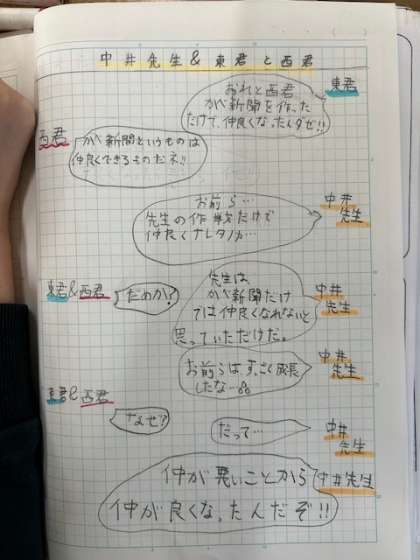 中井先生&東君と西君
東君
おれと西君
かべ新聞を作った
だけで、仲良くなったんダゼ!!
西君
かべ新聞というものは
仲良くできるものだネ!!
中井
先生
お前ら…
先生の作戦だけで
仲良くナレタノカ…
中井
先生
先生は
かべ新聞だけ
では仲良くなれないと
思っていただけだ。
東君&西君
だのか?
中井
先生
お前らはすっごく成長
したな…
東君&西君
なぜ?
中井
先生
だって…
中井先生
仲が悪いことから
仲が良くなったんだぞ!!